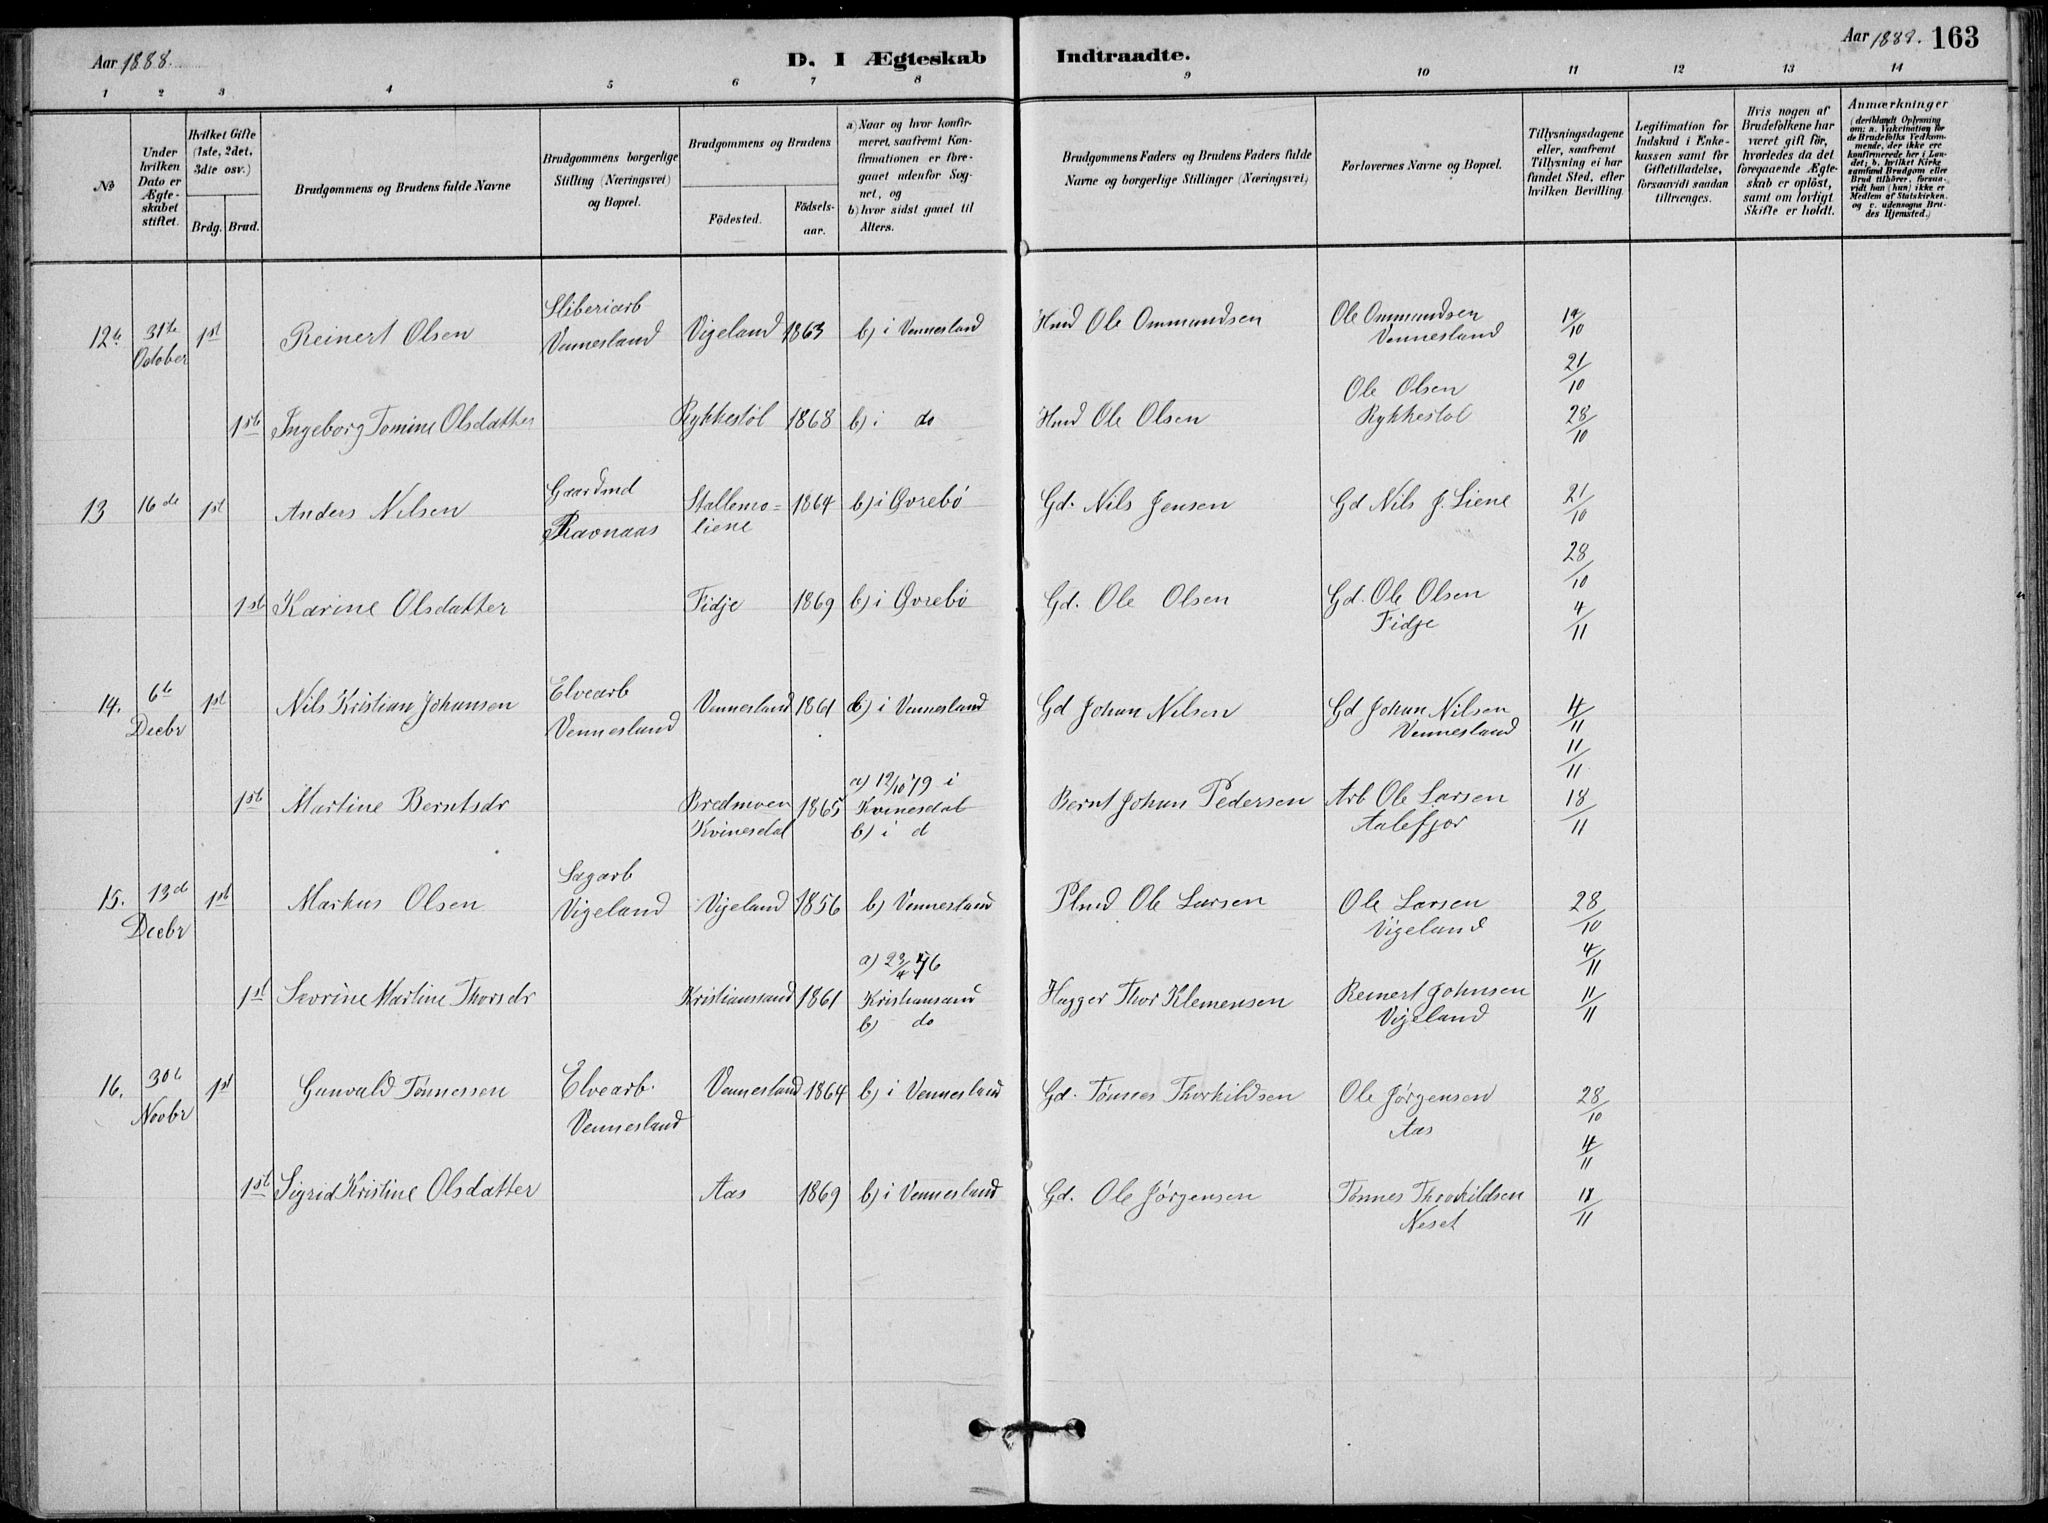 Aar 1888.
D. I Ægteskab Indtraadte.
Aar 1888. 163
1 2 3 4 5 6 7 8 9 10 11 12 13 14
No
Under hvilken Dato er Ægteskabet stiftet.
Hvilket Gifte (1ste, 2det, 3die osv.)
Brdg. Brud.
Brudgommens og Brudens fulde Navne
Brudgommens borgerlige Stilling (Næringsvei) og Bopæl.
Brudgommens og Brudens
Fødested.
Fødsels-aar.
a) Naar og hvor konfirmeret, saafremt Konfirmationen er foregaaet udenfor Sognet, og
b) hvor sidst gaaet til Alters.
Brudgommens Faders og Brudens Faders fulde Navne og borgerlige Stillinger (Næringsvei)
Forlovernes Navne og Bopæl.
Tillysningsdagene eller, saafremt Tillysning ei har fundet Sted, efter hvilken Bevilling.
Legitimation for Indskud i Enkekassen samt for Giftetilladelse, forsaavidt saadan tiltrænges.
Hvis nogen af Brudefolkene har været gift før, hvorledes da det foregaaende Ægteskab er opløst, samt om lovligt Skifte er holdt.
Anmærkninger (deriblandt Oplysning om: a. Vakcination for de Brudefolks Vedkommende, der ikke ere konfirmerede her i Landet; b. hvilket Kirkesamfund Brudgom eller Brud tilhører, forsaavidt han (hun) ikke er Medlem af Statskirken, og c. udensogns Brudes Hjemsted.)
12 31te October 1st Reinert Olsen Sliberiarb Vennesland Vigeland 1863 b) i Vennesland Hmd Ole Ommundsen Ole Ommundsen Vennesland 19/10
21/10
1st Ingeborg Tomine Olsdatter Rykkestöl 1868 b) i do Hmd Ole Olsen Ole Olsen Rykkestol 28/10
13 16de 1st Anders Nilsen Gaardmd Ravnaas Stallemo=liene 1864 b) i Øvrebö Gd. Nils Jensen Gd Nils J. Liene 21/10
28/10
1st Karine Olsdatter Fidje 1869 b) i Øvrebö Gd. Ole Olsen Gd. Ole Olsen Fidje 4/11
14. 6te Decbr 1st Nils Kristian Johansen Elvearb Vennesland Vennesland 1861 b) i Vennesland Gd Johan Nilsen Gd Johan Nilsen Vennesland 4/11
11/11
1st Martine Berntsdr Bredmoen Kvinesdal 1865 a) 12/10 79 i Kvinesdal b) i d Bernt Johan Pedersen Arb Ole Larsen Aalefjær 18/11
15. 13d Decbr 1st Markus Olsen Sagarb Vigeland Vigeland 1856 b) Vennesland Plmd Ole Larsen Ole Larsen Vigeland 28/10
4/11
1st Sevrine Martine Thorsdr Kristianssand 1861 a) 23/4 76 Kristiansand b) do Hugger Thor Klemensen Reinert Johnsen Vigeland 11/11
16. 30te Novbr 1st Gunvald Tönnessen Elvearb. Vennesland Vennesland 1864 b) i Vennesland Gd. Tönnes Thorkildsen Ole Jörgensen Aas 28/10
4/11
1st Sigrid Kristine Olsdatter Aas 1869 b) i Vennesland Gd. Ole Jörgensen Tönnes Thorkildsen Neset 11/11